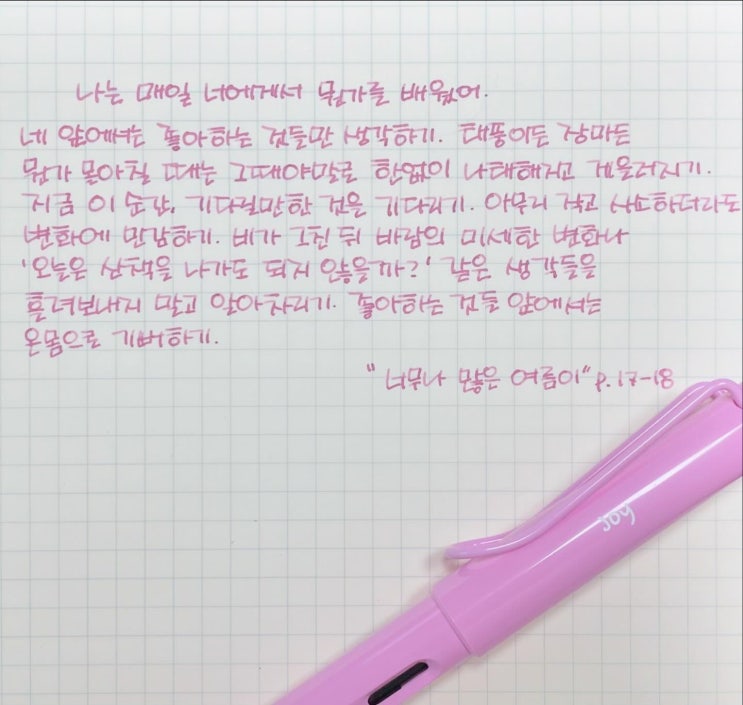 나는 매일 너에게서 뭔가를 배웠어.
네 앞에서는 좋아하는 것들만 생각하기. 태풍이든 장마든
뭔가 몰아칠 때는 그때야말로 한없이 나태해지고 게을러지기.
지금 이 순간, 기다릴만한 것을 기다리기. 아무리 작고 사소하더라도
변화에 민감하기. 비가 그친 뒤 바람의 미세한 변화나
'오늘은 산책을 나가도 되지 않을까?' 같은 생각들을
흘려보내지 말고 알아차리기. 좋아하는 것들 앞에서는
온몸으로 기뻐하기.
"너무나 많은 여름이" p.17-18
joy